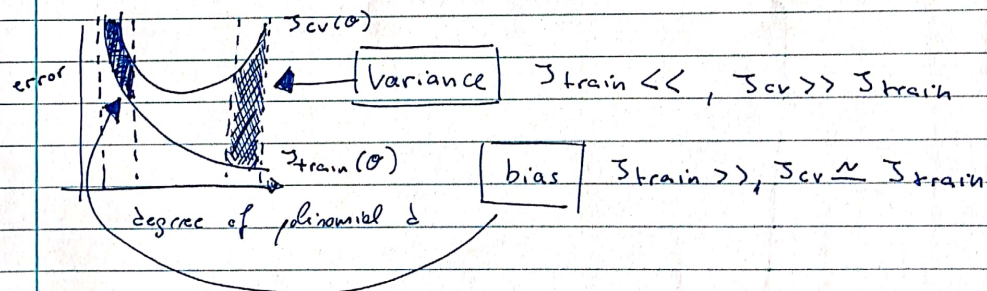 Jcv(θ)
error
Variance Jtrain << , Jcv >> Jtrain
Jtrain(θ)
bias Jtrain >>, Jcv ≃ Jtrain
degree of polinomial d